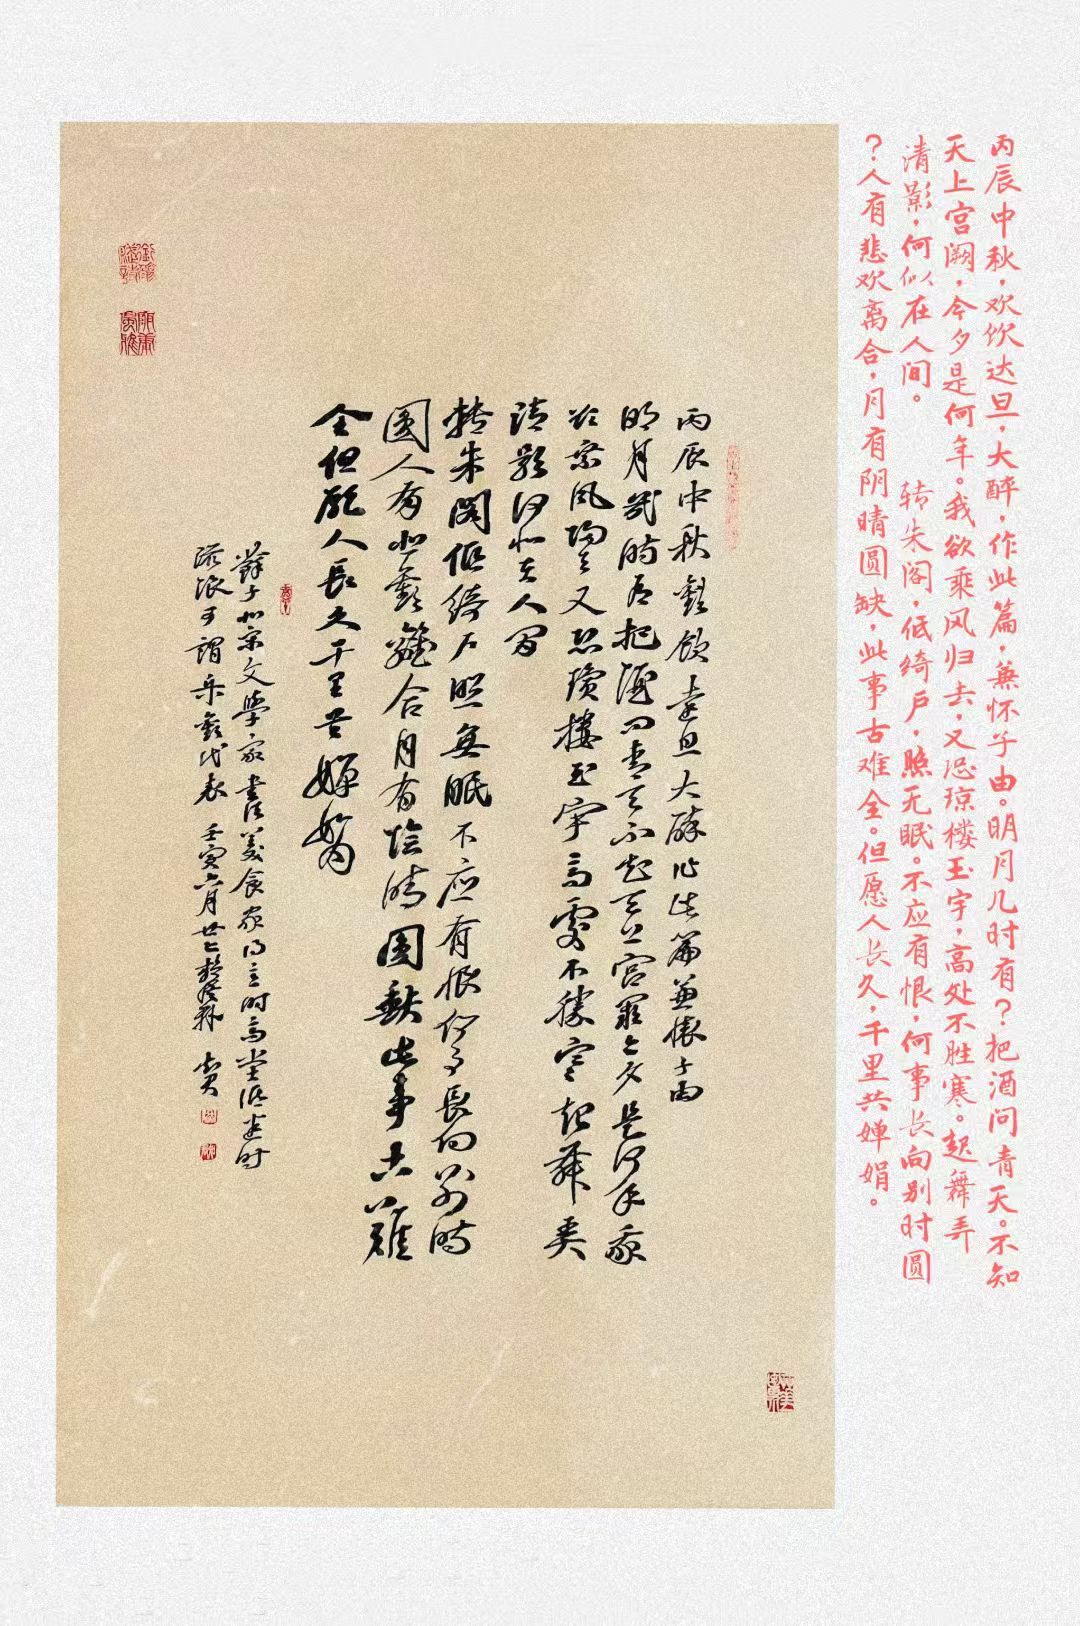 丙辰中秋，欢饮达旦，大醉，作此篇，兼怀子由。明月几时有？把酒问青天。不知
天上宫阙，今夕是何年。我欲乘风归去，又恐琼楼玉宇，高处不胜寒。起舞弄
清影，何似在人间。 转朱阁，低绮户，照无眠。不应有恨，何事长向别时圆
？人有悲欢离合，月有阴晴圆缺，此事古难全。但愿人长久，千里共婵娟。
丙辰中秋歡飲達旦大醉作此篇兼懷子由
明月幾時有把酒问青天不知天上宮闕今夕是何年我
欲乘風歸去又恐瓊樓玉宇高處不勝寒起舞弄
清影何似在人間
轉朱閣低綺户照無眠不应有恨何事長向别時
圓人有悲歡離合月有陰晴圓缺此事古難
全但願人長久千里共嬋娟
蘇子北宋文學家書法美食家
可謂代表壬寅六月